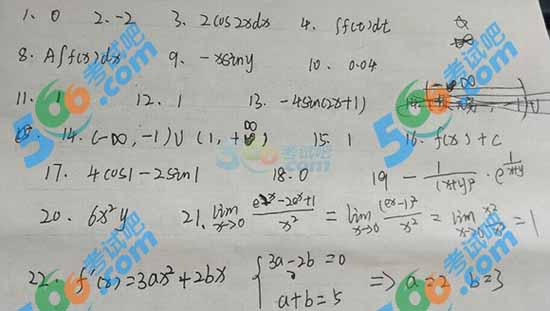 1. 0 2. -2 3. 2cos2xdx 4. ∫f(t)dt
8. A∫f(x)dx 9. -xsiny 10. 0.04
11. 1 12. 1 13. -4sin(2x+1)
14. (-∞, -1)∪(1, +∞) 15. 1 16. f(x)+c
17. 4cos1-2sin1 18. 0 19 -1/(x+y)² · e^(1/(x+y))
20. 6x²y 21. lim x→0 (e^2x-2e^x+1)/x² = lim x→0 (e^x-1)²/x² = lim x→0 x²/x² = 1
22. f'(x)=3ax²+2bx { 3a-2b=0 a+b=5 ⇒ a=2 b=3
566考试吧